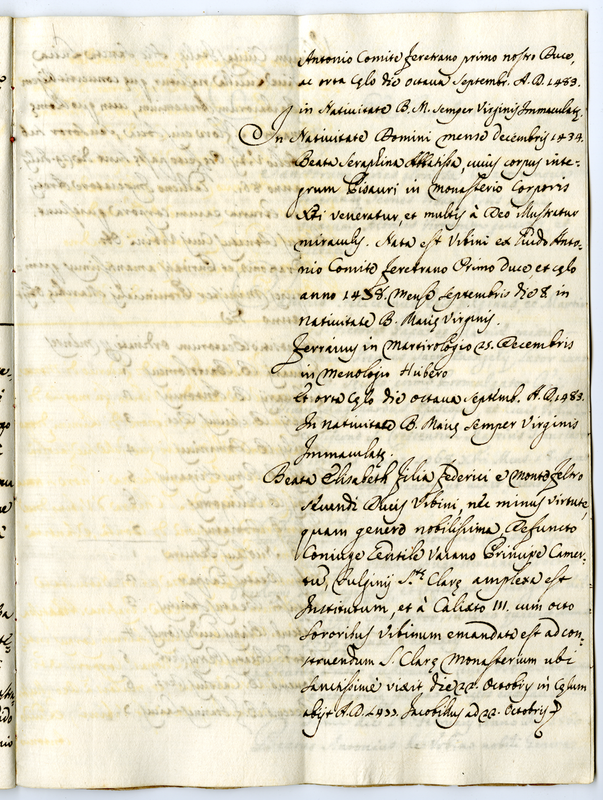 Antonio Comite Feretrano primo nostro Duce,
ac orta Cęlo die octava Septembr. A.D. 1483.
in Nativitate B. M. semper Virginis Immaculatę.
In Nativitate Domini mense decembris 1434.
Beata Seraphina Abbatissa, cuius corpus inte-
grum Pisauri in monasterio Corporis
Xti veneratur, et multis à Deo illustratur
miraculis. Nata est Urbini ex Guido Anto-
nio Comite Feretrano Primo Duce, et cęlo
anno Mense Septembris die 8. in
nativitate B. Marię Virginis.
Ferrarius in Martirologio 25. Decembris
in Menologio Hubero
Et orta Cęlo die octava Septemb. A.D. 1483.
In nativitate B. Marię Semper Virginis
Immaculatę.
Beata Elisabeth Filia Federici e Monte Feltro
Secundi Ducis Urbini, nec minus virtute,
quam genere nobilissima, Defuncto
Coniuge Gentile Varano Principe Camer-
tū, Fulginij S.tę Clarę amplexa est
Institutum, et à Calixto III. cum octo
sororibus Urbinum emandata est ad con-
struendum S. Clarę Monasterium ubi
sanctissime vixit die 22. Octobris in Cęlum
abijt A.D. Jacobillus ad 22. Octobris